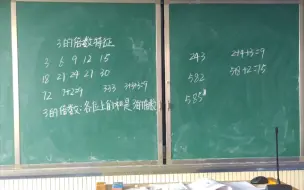 3的倍数特征
3 6 9 12 15
18 21 24 21 30
12 1+2=9 333 3+3+3=9
3的倍数:各位上的和是 倍数
243 2+4+3=9
582 5+8+2=15
585